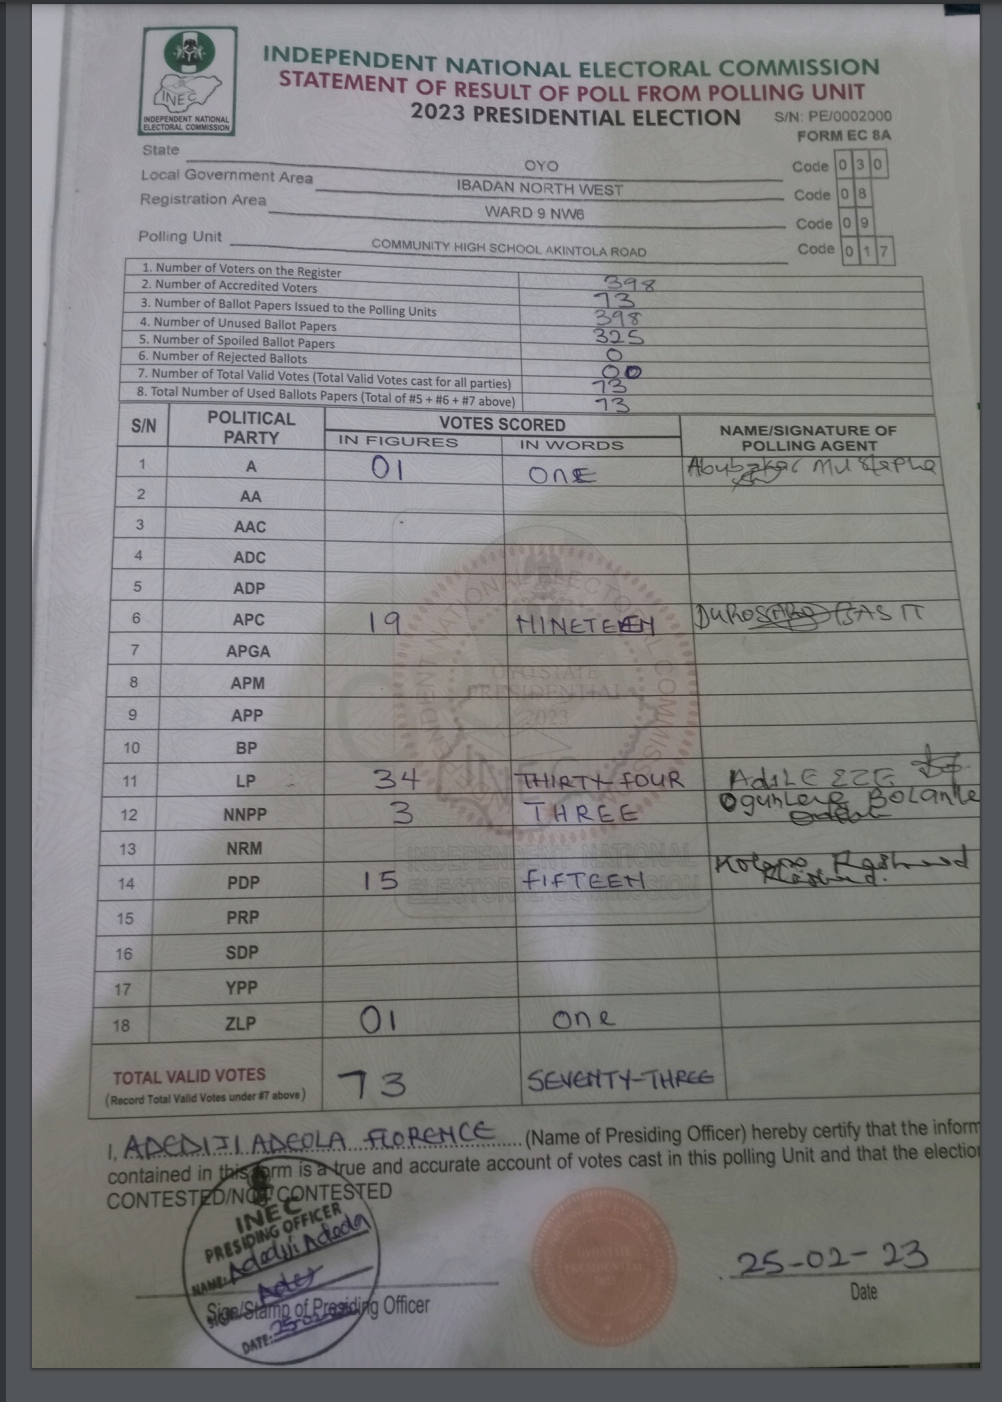 INDEPENDENT NATIONAL ELECTORAL COMMISSION
STATEMENT OF RESULT OF POLL FROM POLLING UNIT
2023 PRESIDENTIAL ELECTION
S/N: PE/0002000
FORM EC 8A
INEC
INDEPENDENT NATIONAL
ELECTORAL COMMISSION
State OYO Code 0 3 0
Local Government Area IBADAN NORTH WEST Code 0 8
Registration Area WARD 9 NW6 Code 0 9
Polling Unit COMMUNITY HIGH SCHOOL AKINTOLA ROAD Code 0 1 7
1. Number of Voters on the Register 398
2. Number of Accredited Voters 73
3. Number of Ballot Papers Issued to the Polling Units 398
4. Number of Unused Ballot Papers 325
5. Number of Spoiled Ballot Papers 0
6. Number of Rejected Ballots 00
7. Number of Total Valid Votes (Total Valid Votes cast for all parties) 73
8. Total Number of Used Ballots Papers (Total of #5 + #6 + #7 above) 73
S/N POLITICAL PARTY VOTES SCORED NAME/SIGNATURE OF POLLING AGENT
IN FIGURES IN WORDS
1 A 01 ONE Abubakar Mustapha
2 AA
3 AAC
4 ADC
5 ADP
6 APC 19 NINETEEN
7 APGA
8 APM
9 APP
10 BP
11 LP 34 THIRTY-FOUR
12 NNPP 3 THREE
13 NRM
14 PDP 15 FIFTEEN Rasheed
15 PRP
16 SDP
17 YPP
18 ZLP 01 One
TOTAL VALID VOTES 73 SEVENTY-THREE
(Record Total Valid Votes under #7 above)
I, ADEDIJI ADEOLA FLORENCE (Name of Presiding Officer) hereby certify that the inform
contained in this form is a true and accurate account of votes cast in this polling Unit and that the electio
CONTESTED/NOT CONTESTED
INEC
PRESIDING OFFICER
NAME: Adediji Adeola
25-02-23
Date
Sign/Stamp of Presiding Officer
DATE: 25-02